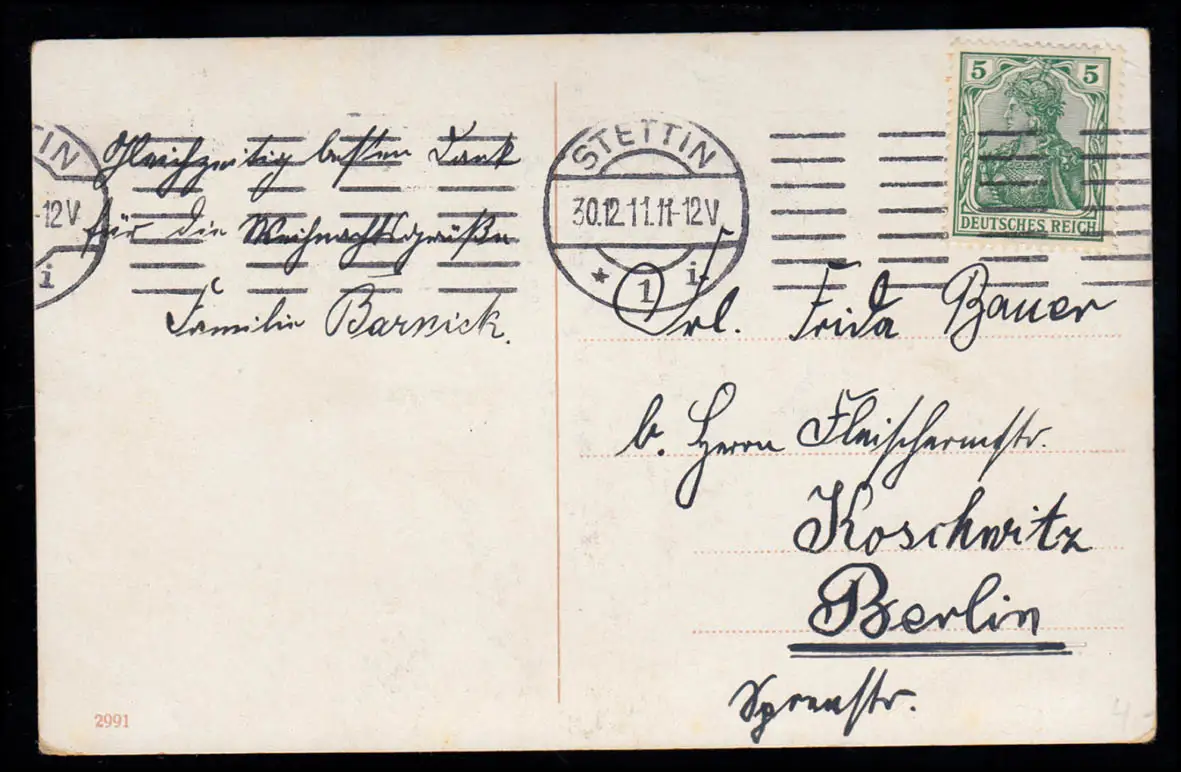 Gleichzeitig besten Dank
für die Weihnachtsgrüße
Familie Barnick.
TIN
-12V
i
STETTIN
30.12.11.11-12V
* 1 i
5 5
DEUTSCHES REICH
Frl. Frida Bauer
b. Herrn Fleischermstr.
Koschwitz
Berlin
Spreestr.
2991
4.-